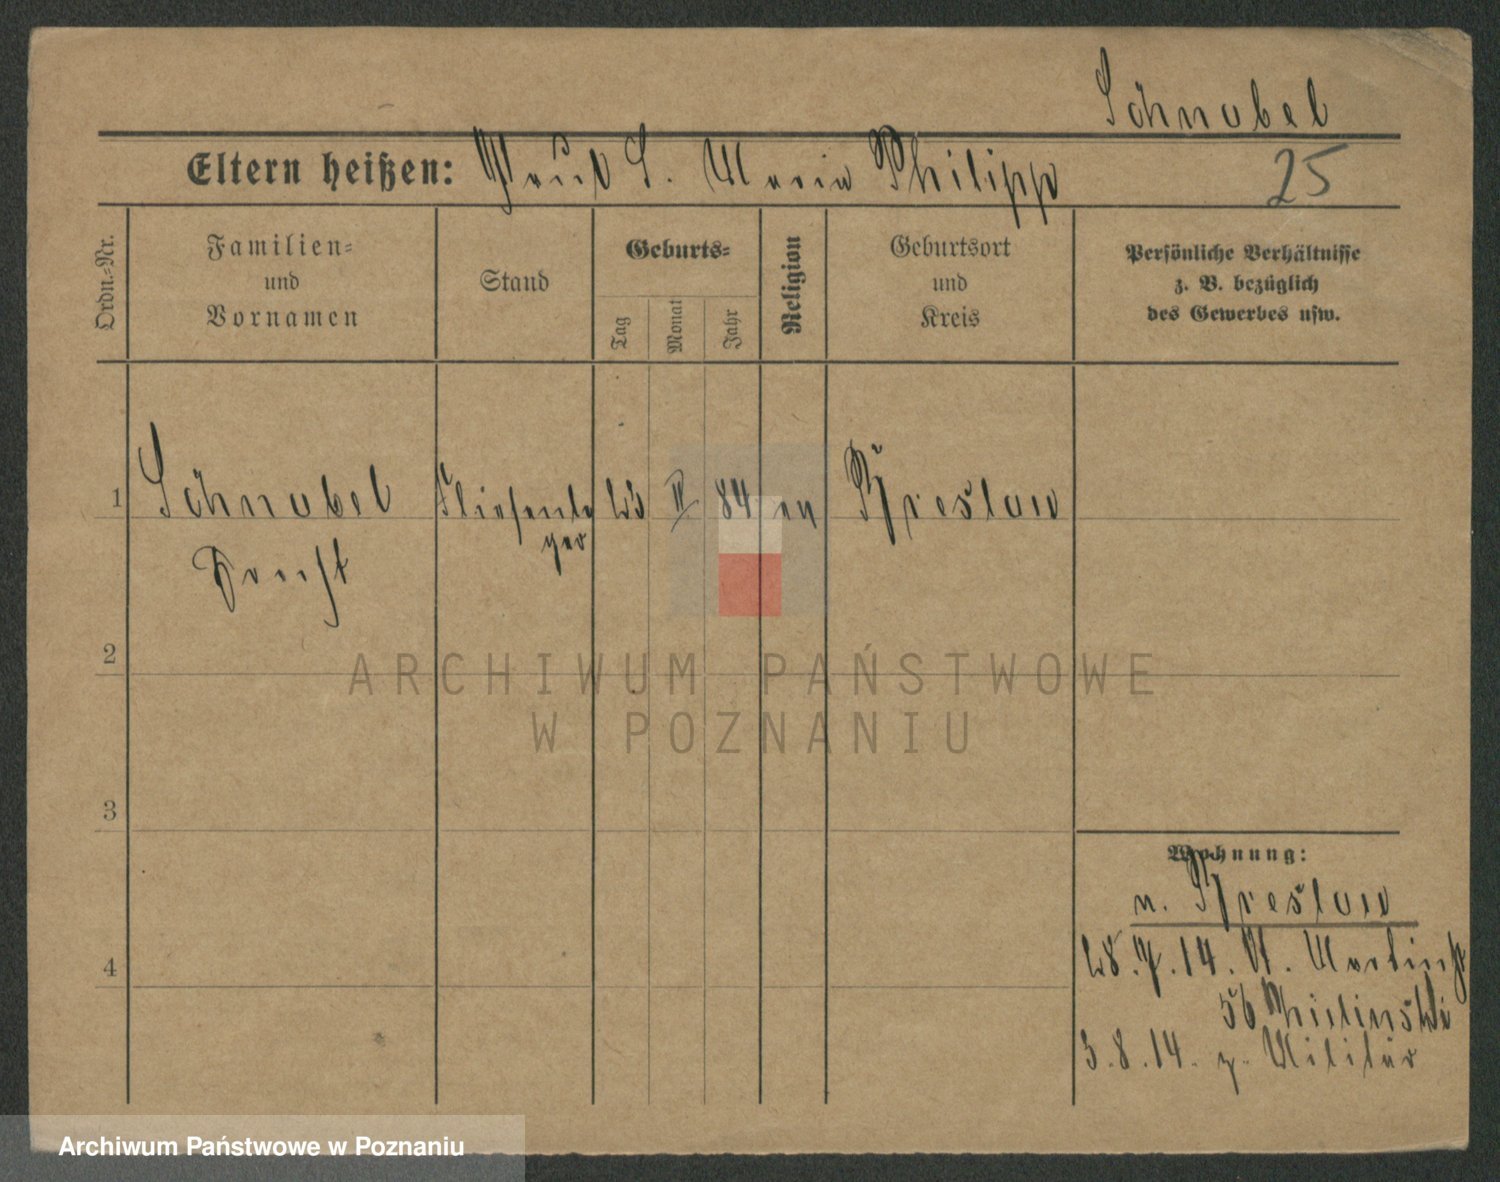 Schnabel
Eltern heißen: Paul S. Maria Philipp
25
Ordn.-Nr.
Familien-
und
Vornamen
Stand
Geburts-
Tag
Monat
Jahr
Religion
Geburtsort
und
Kreis
Persönliche Verhältnisse
z. B. bezüglich
des Gewerbes usw.
1 Schnabel Fliesenle 23 II 84 ev Breslau
ger
2
3
4
ARCHIWUM PAŃSTWOWE
W POZNANIU
Wohnung:
n. Breslau
28.7.14. St. Martinst
56
3.8.14. z. Militär
Archiwum Państwowe w Poznaniu